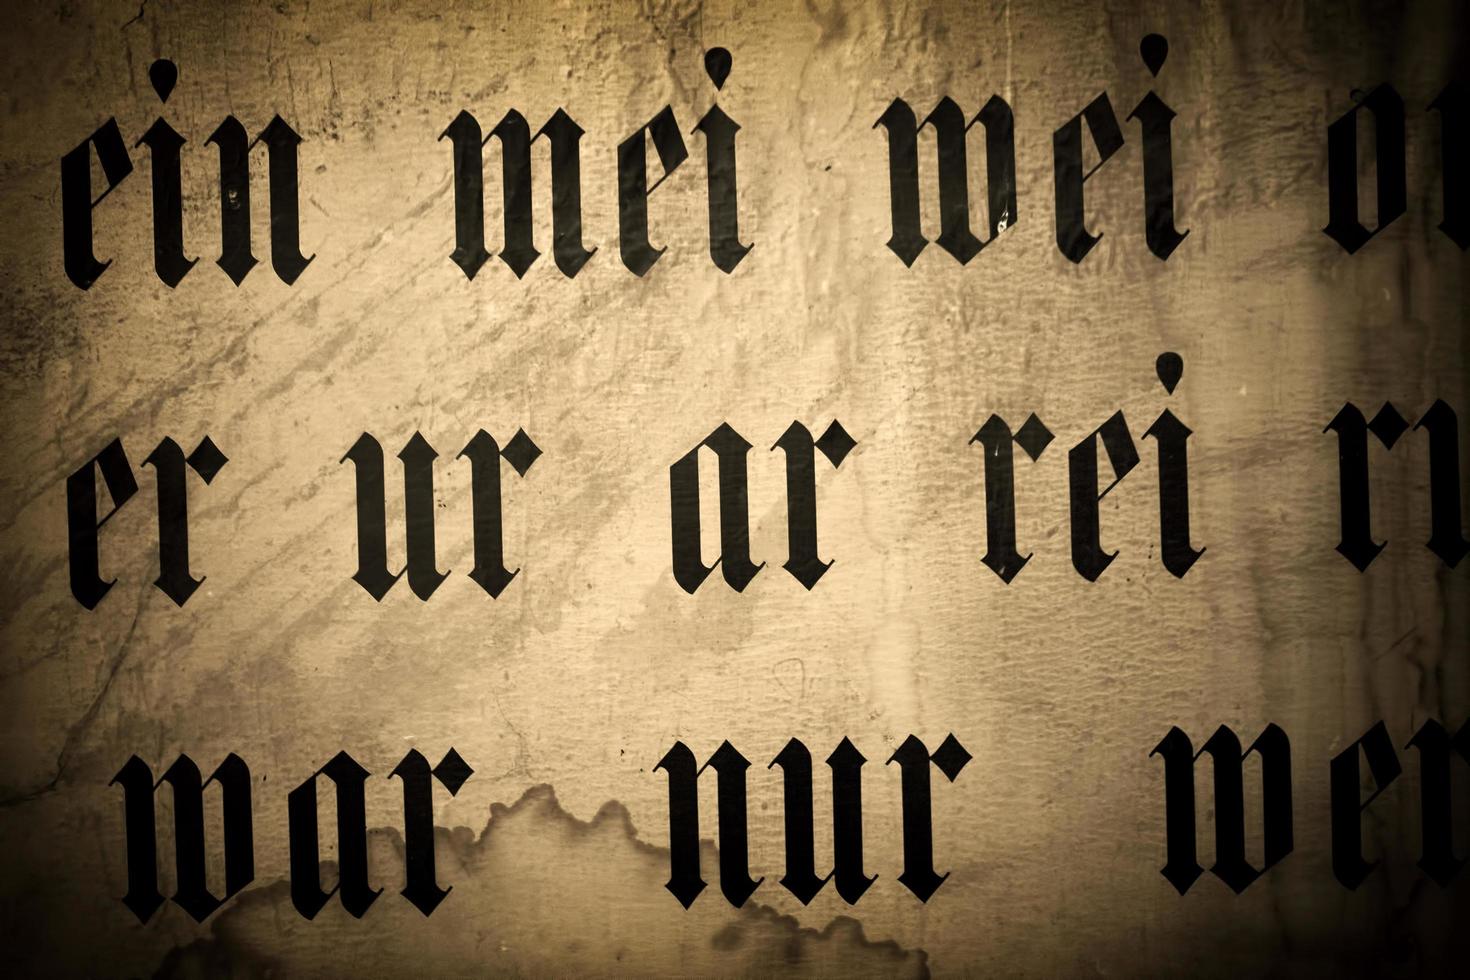 ein mei wei
er ur ar rei
war nur wer